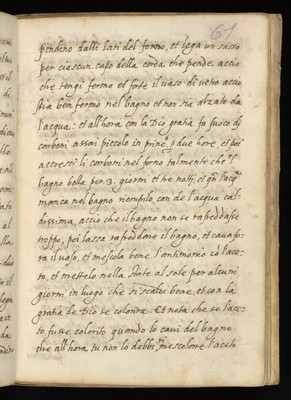 61
pendino dalli lati del forno, et lega un sasso
per ciascun capo della corda che pende, accio
che tengi fermo et forte il vaso di vetro accio
stia ben fermo nel bagno et non sia alzato da
l'acqua: et all'hora con la Dio gratia fa fuoco di
carboni assai piccolo in prine. p due hore, et poi
accresci li carboni nel forno talmente che 'l
bagno bolla per 3. giorni et tre notti, et qn l'acq
manca nel bagno riempilo con de l'acqua cal-
dissima, accio che il bagno non se rafreddasse
troppo, poi lassa rafreddare il bagno, et cava fo-
ra il vaso, et mescola bene l'antimonio co l'ace-
to, et mettelo nella state al sole per alcuni
giorni in luogo che si scaldi bene, et con la
gratia de Dio se colorira. Et nota che se l'ace-
to fusse colorito quando lo cavi del bagno
che all'hora tu non lo debbi mescolare l'aceto